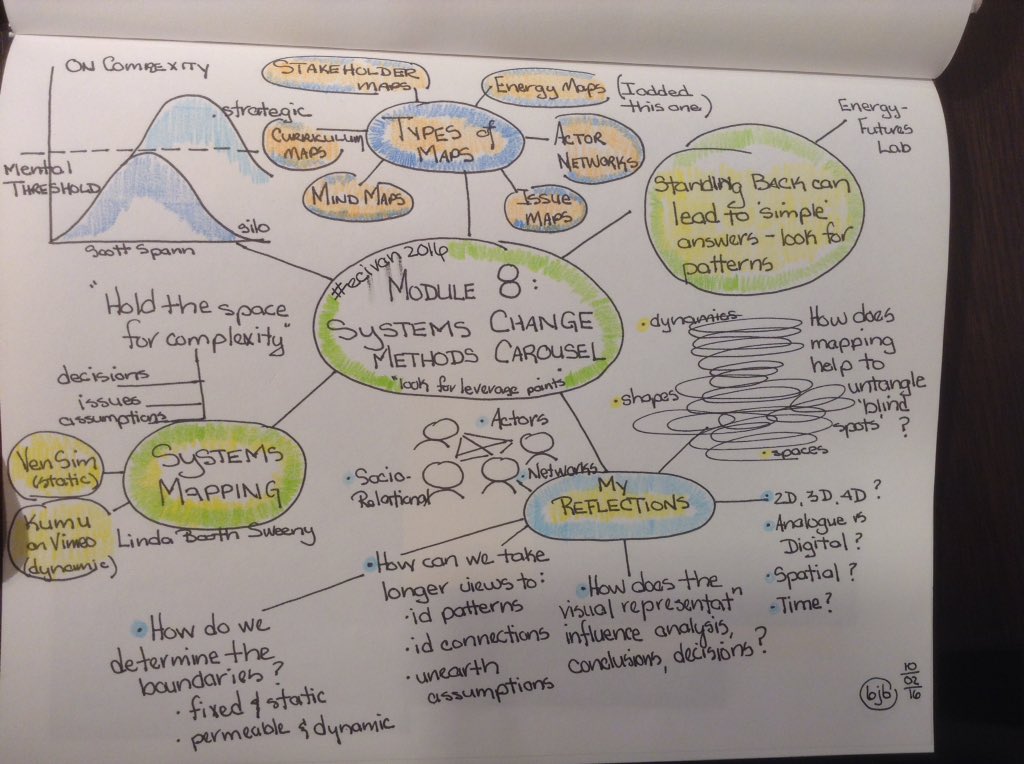 ON COMPEXITY
strategic
Mental
THRESHOLD
silo
Scott Spann
STAKEHOLDER
MAPS
Energy Maps
(I added
this one)
CURRICULUM
MAPS
TYPES of
MAPS
ACTOR
NETWORKS
MIND MAPS
ISSUE
MAPS
Energy-
Futures
Lab
Standing BACK can
lead to 'simple'
answers - look for
patterns
#ecivan 2016
MODULE 8:
SYSTEMS CHANGE
METHODS CAROUSEL
"look for leverage points"
"Hold the space
for complexity"
decisions
issues
assumptions
SYSTEMS
MAPPING
VenSim
(static)
Kumu
on Vimeo
(dynamic)
Linda Booth Sweeny
• dynamics
• shapes
• spaces
How does
mapping
help to
untangle
'blind
spots'?
• Actors
• Socio-
Relational
• Networks
MY
REFLECTIONS
• 2D, 3D, 4D?
• Analogue vs
Digital?
• Spatial?
• Time?
• How can we take
longer views to:
• id patterns
• id connections
• unearth
assumptions
• How does the
visual representatⁿ
influence analysis,
conclusions, decisions?
• How do we
determine the
boundaries?
• fixed & static
• permeable & dynamic
bjb
10
02
16